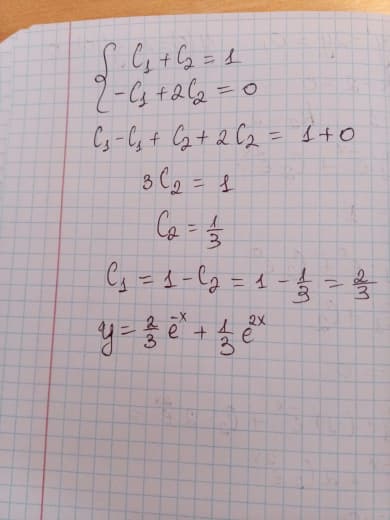 { C₁ + C₂ = 1
-C₁ + 2C₂ = 0
C₁ - C₁ + C₂ + 2C₂ = 1 + 0
3C₂ = 1
C₂ = 1/3
C₁ = 1 - C₂ = 1 - 1/3 = 2/3
y = 2/3 e^-x + 1/3 e^2x